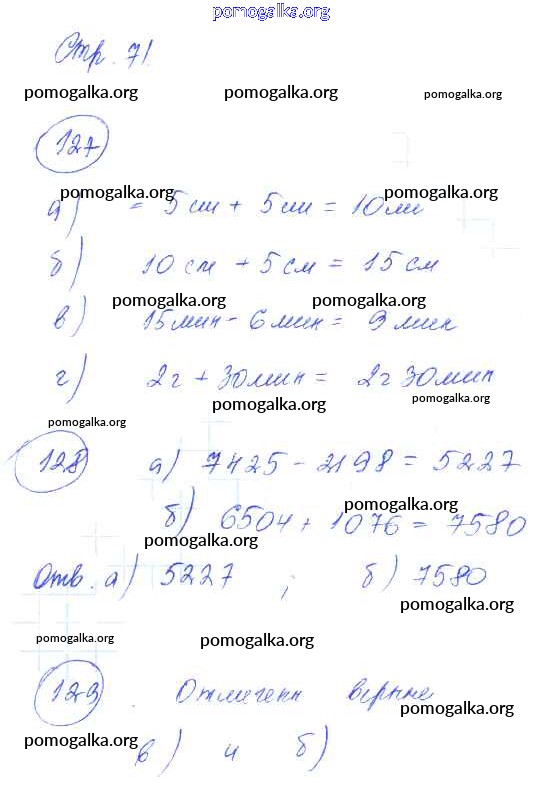 pomogalka.org
Стр. 71.
pomogalka.org pomogalka.org pomogalka.org
127
pomogalka.org pomogalka.org
а) = 5 см + 5 см = 10 см
б) 10 см + 5 см = 15 см
pomogalka.org pomogalka.org
в) 15 мин - 6 мин = 9 мин
г) 2 г + 30 мин = 2 г 30 мин
pomogalka.org pomogalka.org
pomogalka.org
128 а) 7425 - 2198 = 5227
pomogalka.org
б) 6504 + 1076 = 7580
pomogalka.org
Отв. а) 5227 ; б) 7580
pomogalka.org
pomogalka.org pomogalka.org
129. Отмечены верные
pomogalka.org
pomogalka.org в) и б)